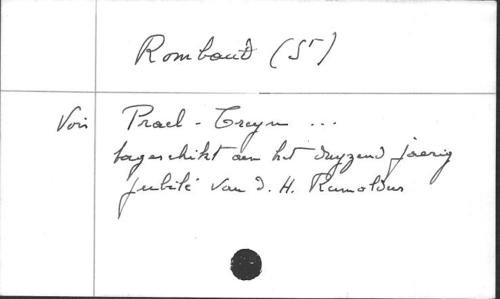 Rombaud (St)
Voir Prael-Treyn ...
toegeschikt aen het duyzend jaerig
jubilé van d. H. Rumoldus